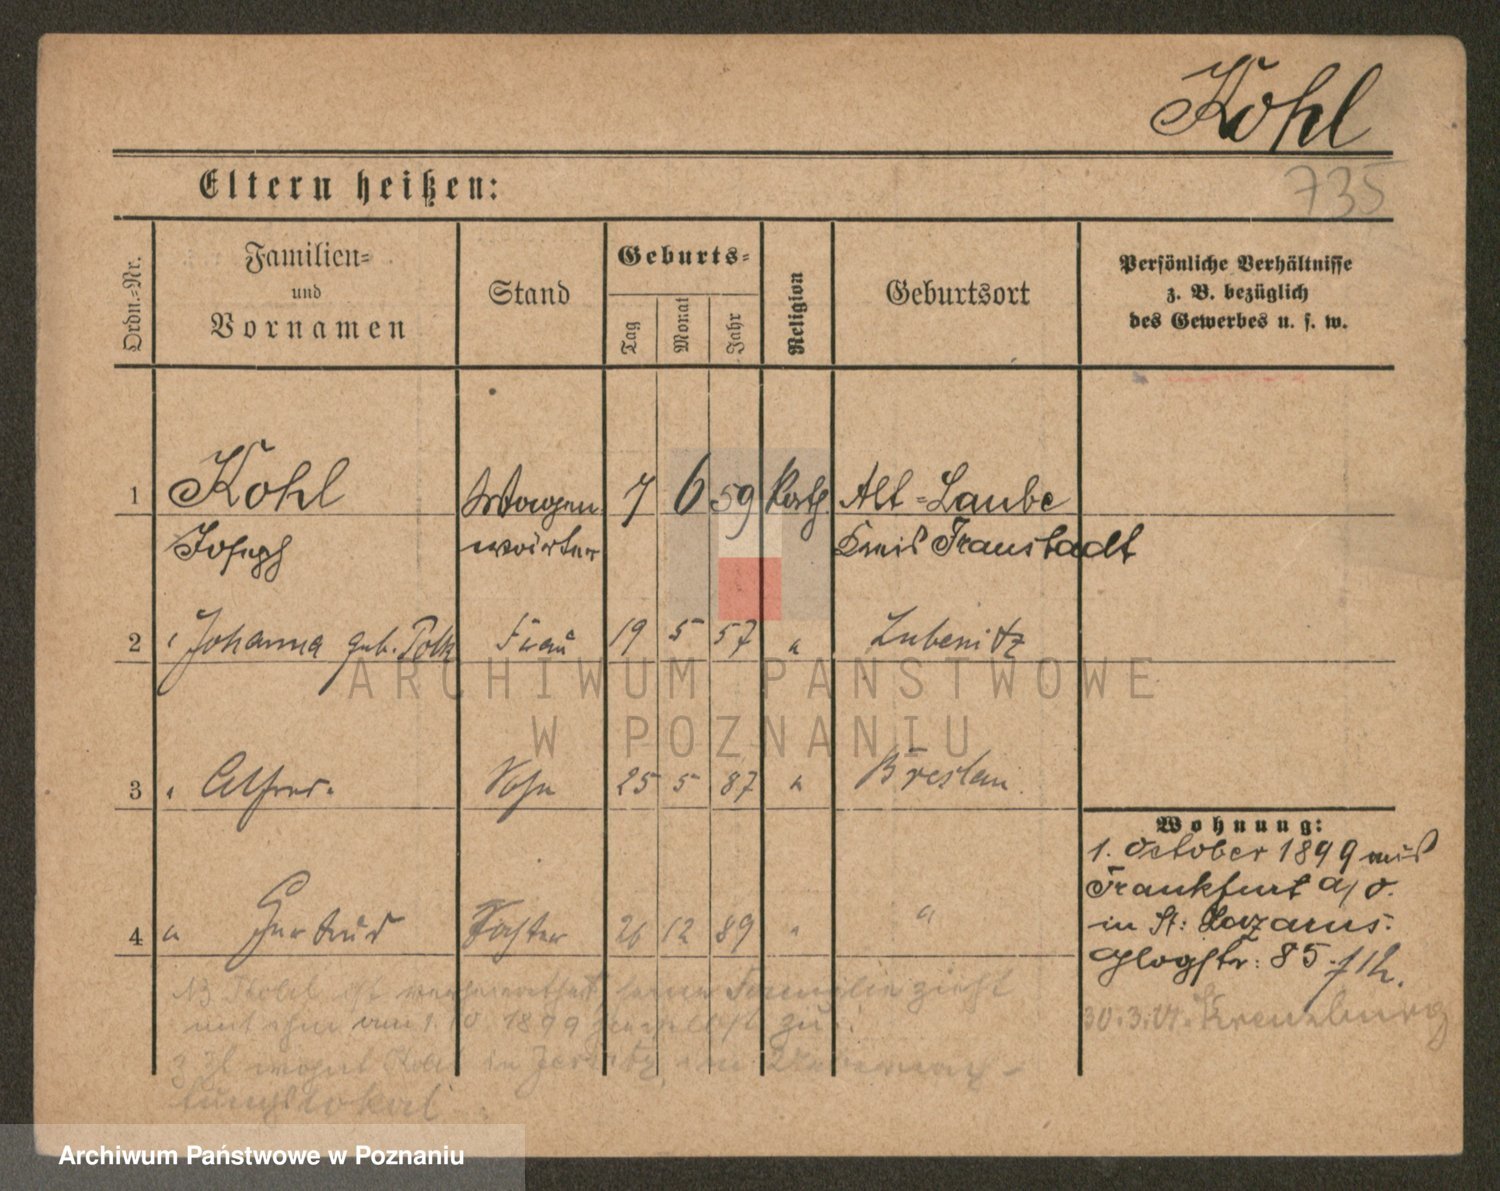 Kohl
735
Eltern heißen:
Ordn.-Nr.
Familien-
und
Vornamen
Stand
Geburts-
Tag
Monat
Jahr
Religion
Geburtsort
Persönliche Verhältnisse
z. B. bezüglich
des Gewerbes u. s. w.
1 Kohl Wagen 7 6 59 Kath Alt-Laube
Joseph wärter Kreis Fraustadt
2 " Johanna geb. Polk Frau 19 5 57 " Lubenitz
ARCHIWUM PAŃSTWOWE
W POZNANIU
3 " Alfred. Sohn 25 5 87 " Breslau.
4 " Gertrud Tochter 26 12 89 " "
Wohnung:
1. October 1899 aus
Frankfurt a/O.
in St: Lazarus.
Glogstr: 85
30.3.01. Kreuzburg
NB Kohl ist verheirathet, seine Familie zieht
mit ihm am 1.10 1899 zu.
z Zt wohnt Kohl in Jersitz, im
lungslokal
Archiwum Państwowe w Poznaniu